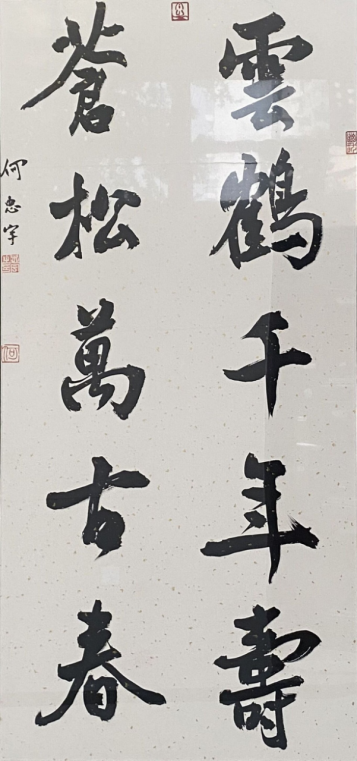 雲鶴千年壽
蒼松萬古春
何忠字